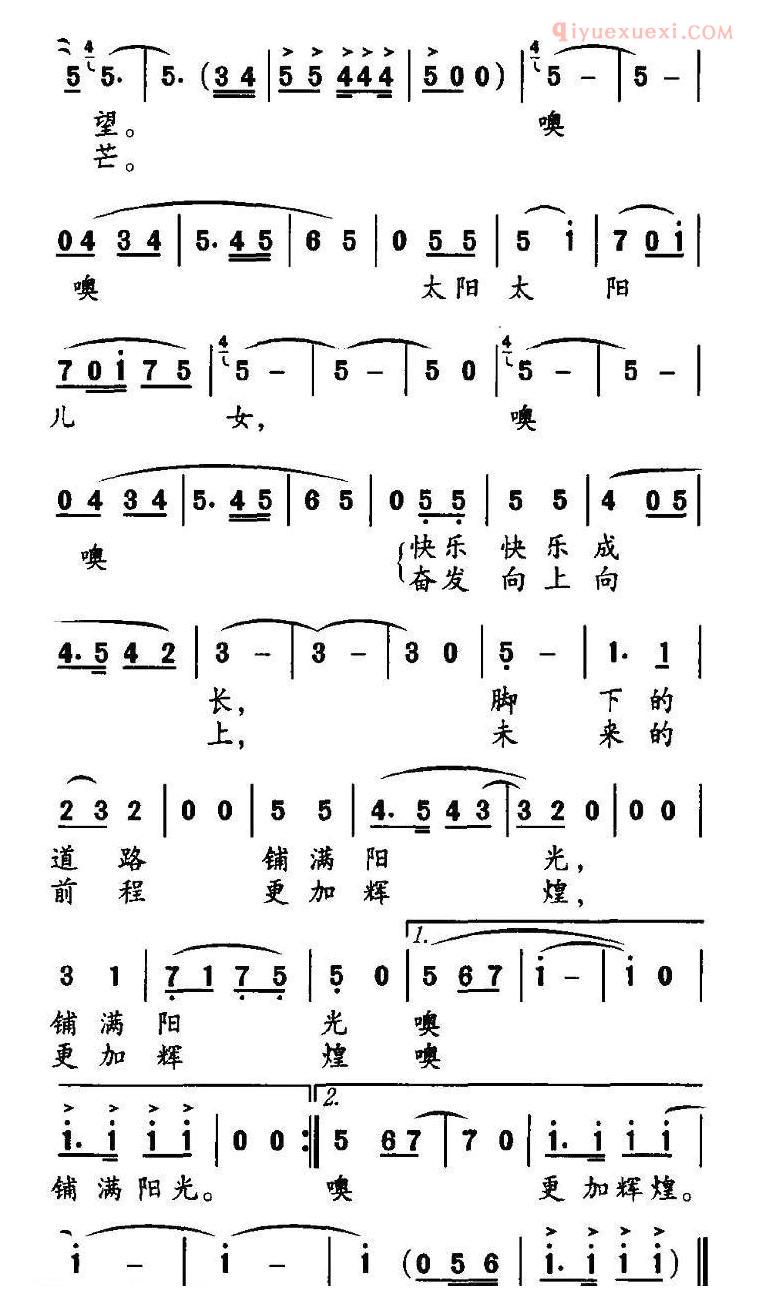 qiyuexuexi.COM
4 4
5 5. | 5. (3 4 | 5 5 4 4 4 | 5 0 0) | 5 - | 5 - |
望。 噢
芒。
0 4 3 4 | 5. 4 5 | 6 5 | 0 5 5 | 5 i | 7 0 i |
噢 太阳 太 阳
4 4
7 0 i 7 5 | 5 - | 5 - | 5 0 | 5 - | 5 - |
儿 女, 噢
0 4 3 4 | 5. 4 5 | 6 5 | 0 5 5 | 5 5 | 4 0 5 |
噢 快乐 快乐 成
奋发 向上 向
4. 5 4 2 | 3 - | 3 - | 3 0 | 5 - | 1. 1 |
长, 脚 下的
上, 未 来的
2 3 2 | 0 0 | 5 5 | 4. 5 4 3 | 3 2 0 | 0 0 |
道 路 铺满 阳 光,
前 程 更加 辉 煌,
1.
3 1 | 7 1 7 5 | 5 0 | 5 6 7 | i - | i 0 |
铺满 阳 光 噢
更加 辉 煌 噢
2.
i. i i i | 0 0 :| 5 6 7 | 7 0 | i. i i i |
铺满阳光。 噢 更加辉煌。
i - | i - | i (0 5 6 | i. i i i) ||